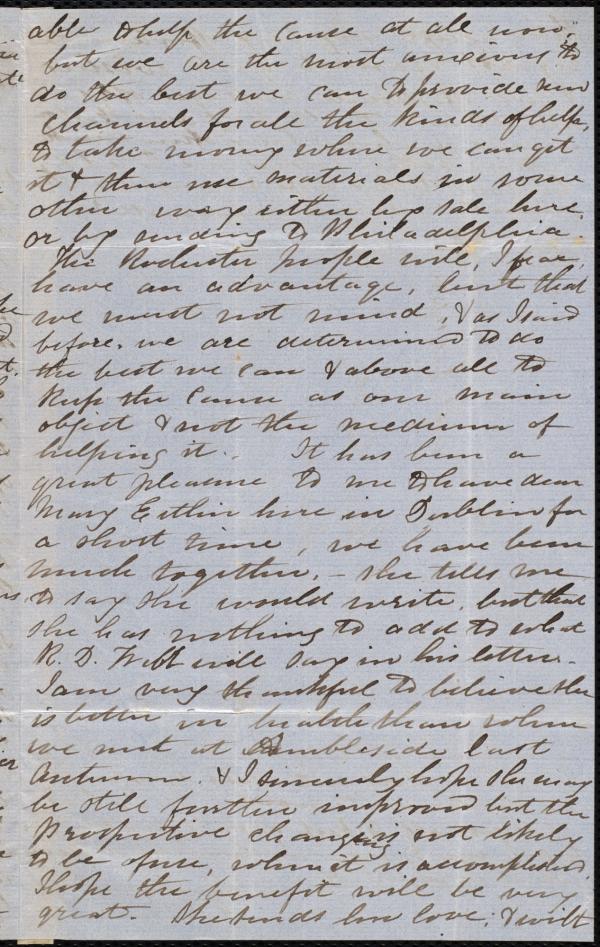 able to help the Cause at all now,
but we are the most anxious to
do the best we can to provide new
Channels for all the kinds of help,
to take money where we can get
it & then use materials in some
other way either by sale here,
or by sending to Philadelphia.
The Rochester people will, I fear,
have an advantage, but that
we must not mind, & as I said
before, we are determined to do
the best we can & above all to
keep the Cause as our main
object & not the medium of
helping it. It has been a
great pleasure to me to have dear
Mary Estlin here in Dublin for
a short time, we have been
much together, - she tells me
to say she would write, but that
she has nothing to add to what
R. D. Webb will say in his letter.
I am very thankful to believe she
is better in health than when
we met at Ambleside last
Autumn. & I sincerely hope she may
be still further improved but the
Prospective changing is not likely
to be of use, when it is accomplished
I hope the benefit will be very
great. She sends her love, & wilt